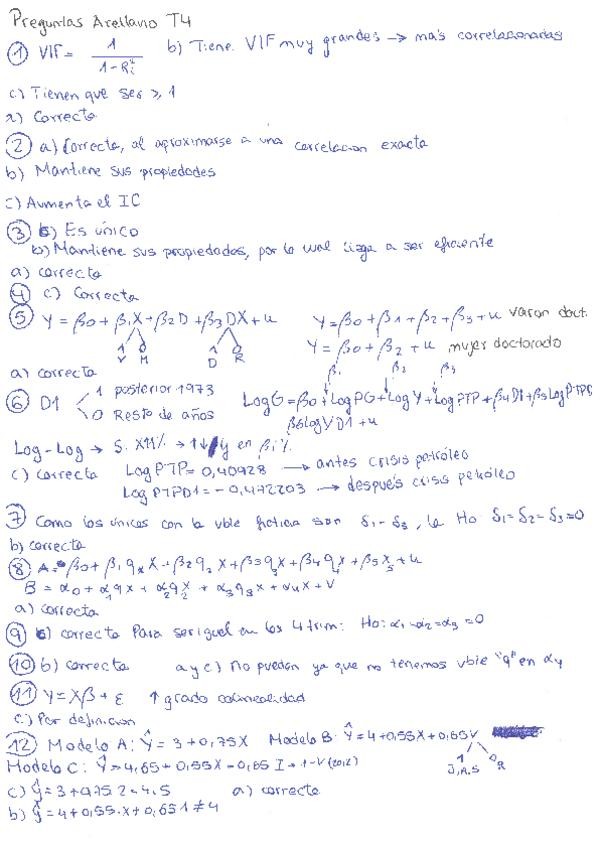 Preguntas Arellano T4
① VIF = 1 / 1-Ri² b) Tiene VIF muy grandes → más correlacionadas
c) Tienen que ser ≥ 1
a) Correcta
② a) Correcta, al aproximarse a una correlacion exacta
b) Mantiene sus propiedades
c) Aumenta el IC
③ c) Es único
b) Mantiene sus propiedades, por lo cual llega a ser eficiente
a) correcta
④ c) Correcta
⑤ Y = β0 + β1X + β2D + β3DX + u Y = β0 + β1 + β2 + β3 + u varon doct.
1 V 0 M 1 D 0 R Y = β0 + β2 + u mujer doctorado
a) correcta
β1 β2 β3
⑥ D1 1 posterior 1973 0 Resto de años LogG = β0 + LogPG + LogY + LogPTP + β4D1 + β5LogPTPD1
β6logYD1 + u
Log-Log → S. X11% → 1↓ y en β1%
c) correcta LogPTP = 0,40928 → antes crisis petróleo
LogPTPD1 = -0,472203 → después crisis petróleo
⑦ Como los únicos con la vble ficticia son δ1-δ3, la H0 δ1=δ2=δ3=0
b) correcta
⑧ A = β0 + β1q1X + β2q2X + β3q3X + β4q4X + β5X5 + u
B = α0 + α1q1X + α2q2X + α3q3X + α4X + V
a) correcta
⑨ c) correcta Para ser igual en los 4 trim: H0: α1=α2=α3=0
⑩ b) correcta a y c) No pueden ya que no tenemos vble "q" en α4
⑪ Y = Xβ + ε ↑ grado colinealidad
c) Por definicion
⑫ Modelo A: Ŷ = 3 + 0,75X Modelo B: Ŷ = 4 + 0,55X + 0,65V
Modelo C: Ŷ = 4,65 + 0,55X - 0,65 I → 1-V (0,1,2) 1 J,A,S 0 R
c) ŷ = 3 + 0,75 2 = 4.5 a) correcta
b) ŷ = 4 + 0,55.X + 0,65 1 ≠ 4